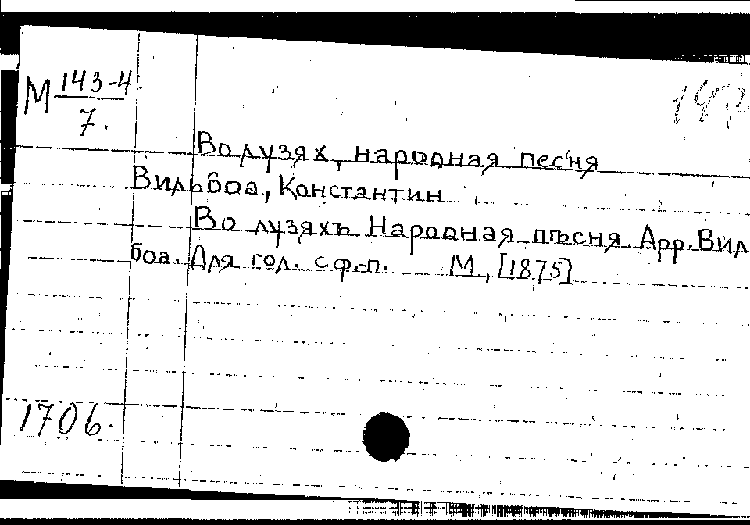 М 143-4
7.
Во лузях, народная песня
Вильбоа, Константин
Во лузяхъ Народная пѣсня Арр. Вил
боа. Для гол. с ф.-п. М., [1875]
1706.